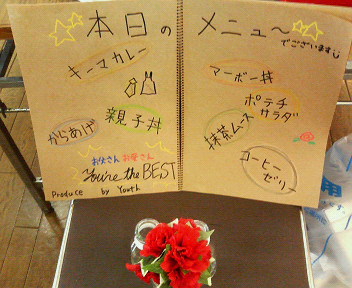 本日のメニュ〜
でございます
キーマカレー
親子丼
からあげ
お父さん お母さん
You're the BEST
Produce by Youth
マーボー丼
ポテチ
サラダ
抹茶ムース
コーヒー
ゼリー
用